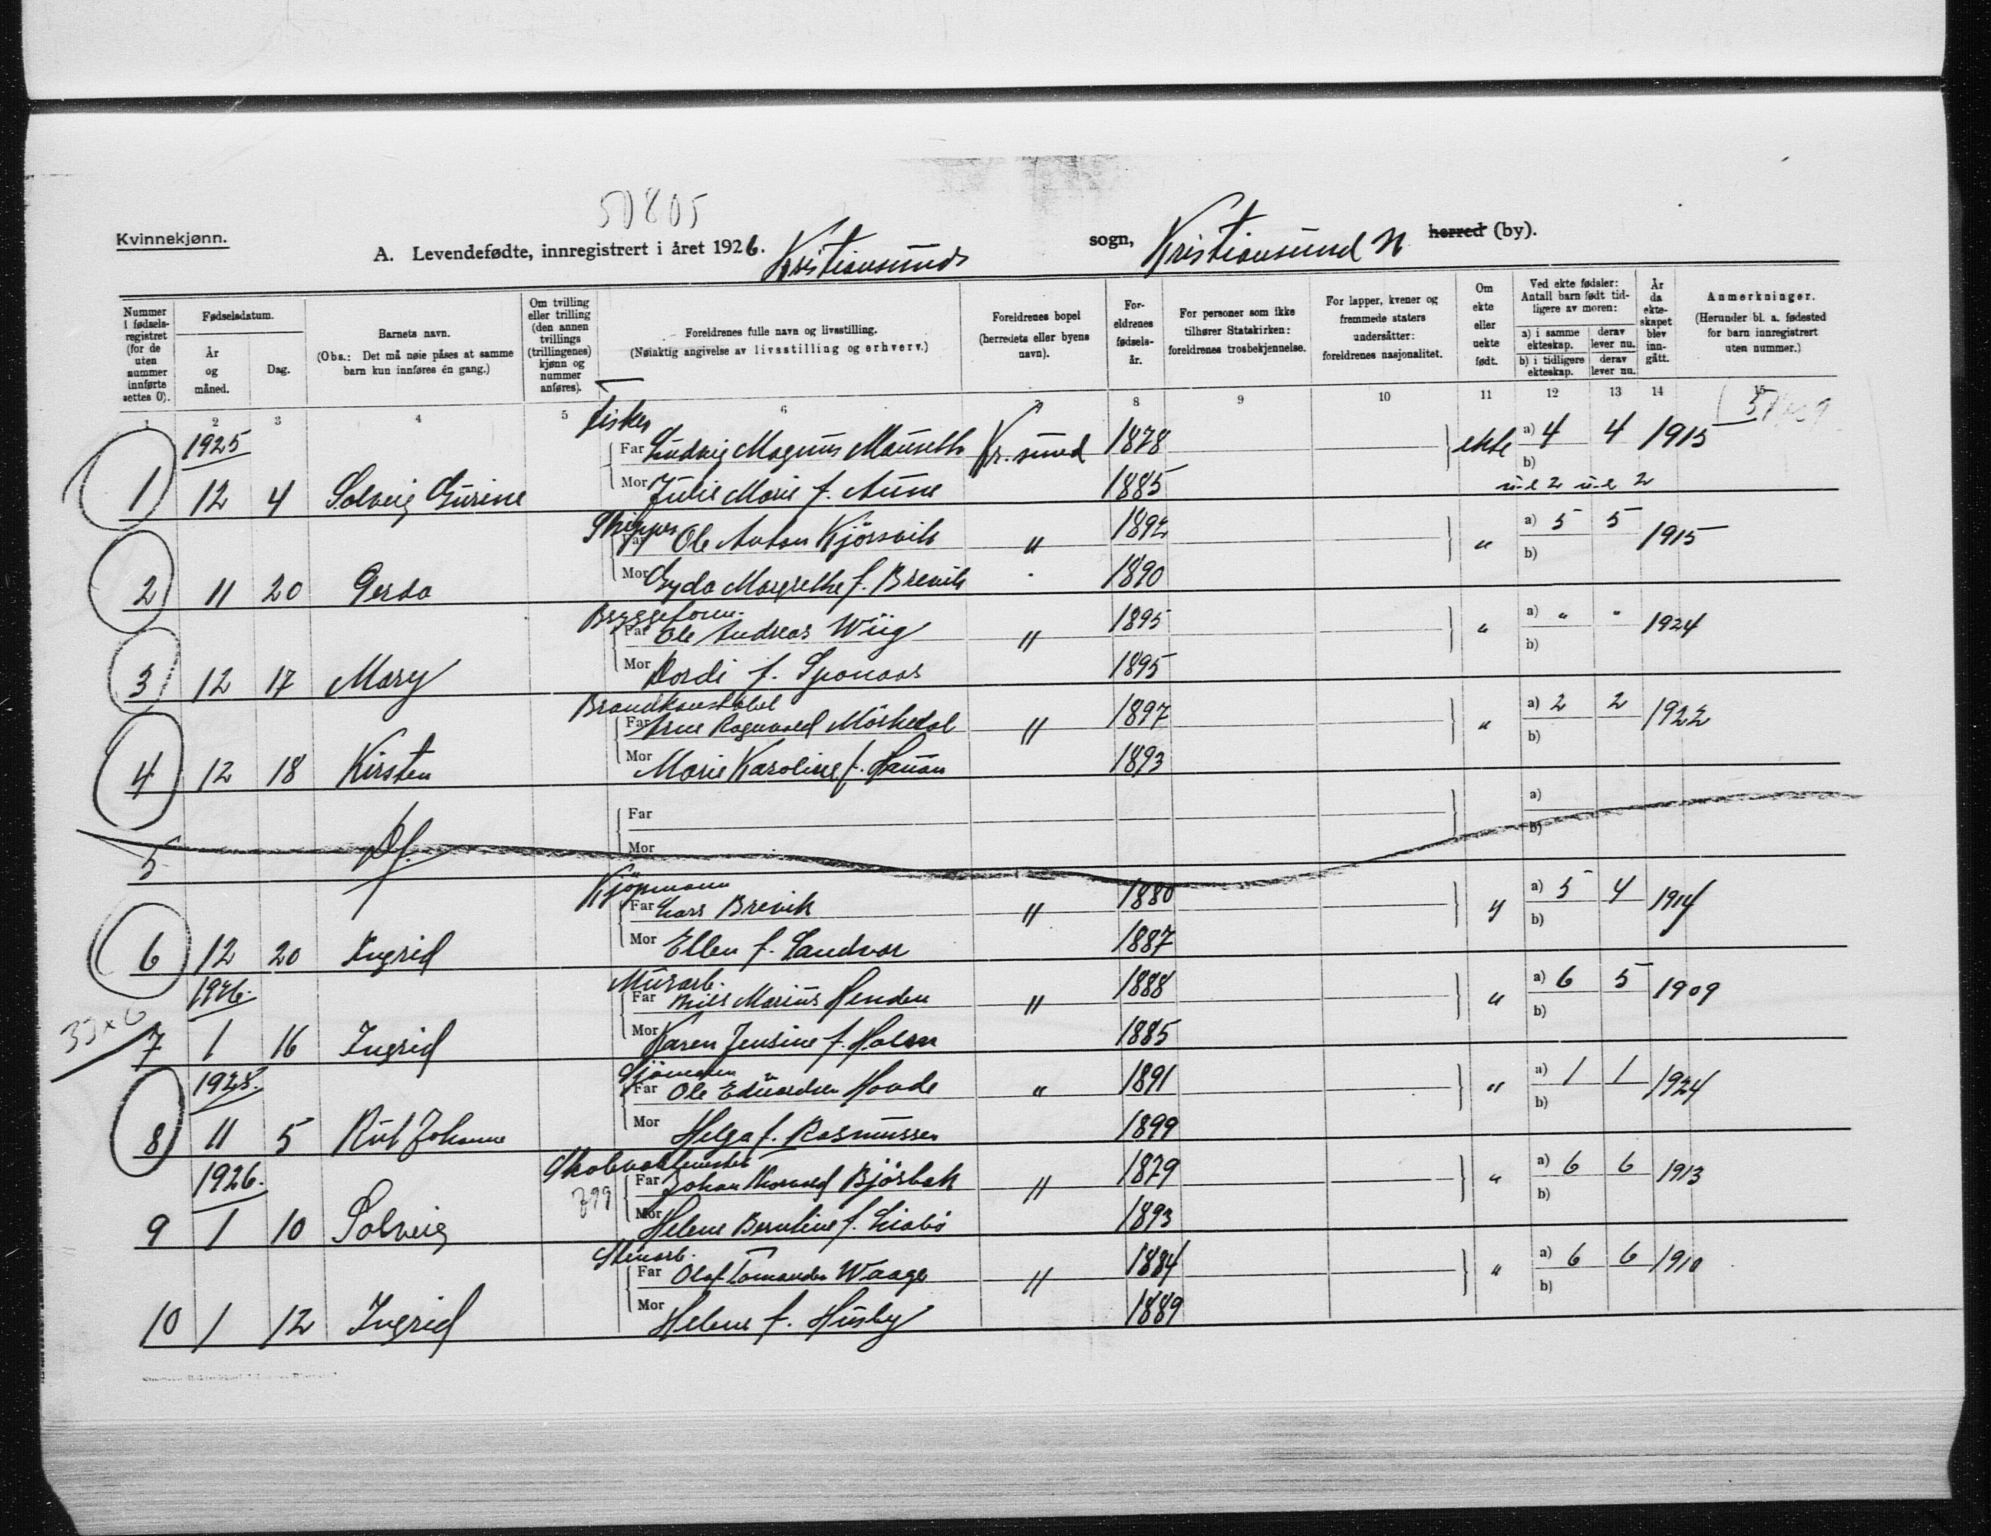 50805
Kvinnekjønn.
A. Levendefødte, innregistrert i året 1926. Kristiansunds sogn, Kristiansund N herred (by).
Nummer i fødselsregistret (for de uten nummer innførte settes 0).
Fødselsdatum.
År og måned.
Dag.
Barnets navn.
(Obs.: Det må nøie påses at samme barn kun innføres én gang.)
Om tvilling eller trilling (den annen tvillings (trillingenes) kjønn og nummer anføres).
Foreldrenes fulle navn og livsstilling.
(Nøiaktig angivelse av livsstilling og erhverv.)
Foreldrenes bopel
(herredets eller byens navn).
Foreldrenes fødselsår.
For personer som ikke tilhører Statskirken: foreldrenes trosbekjennelse.
For lapper, kvener og fremmede staters undersåtter: foreldrenes nasjonalitet.
Om ekte eller uekte født.
Ved ekte fødsler: Antall barn født tidligere av moren:
a) i samme ekteskap. derav lever nu.
b) i tidligere ekteskap. derav lever nu.
År da ekteskapet blev inngått.
Anmerkninger.
(Herunder bl. a. fødested for barn innregistrert uten nummer.)
1 2 3 4 5 6 8 9 10 11 12 13 14 15
1925 Fisker
Far Ludvig Magnus Mauseth Kr.sund 1878 ekte a) 4 4 1915
b)
1 12 4 Solveig Gurine Mor Julie Marie f. Aune 1885 u-e 2 u-e 2
Skipper
Far Ole Anton Kjörsvik " 1892 " a) 5 5 1915
b)
2 11 20 Gerda Mor Gyda Margrethe f. Brevik 1890
Bryggeform.
Far Ole Andreas Wiig " 1895 " a) " " 1924
b)
3 12 17 Mary Mor Nordi f. 1895
Brandkonstabel
Far Arne Ragnvald Mörkedal " 1897 " a) 2 2 1922
b)
4 12 18 Kirsten Mor Marie Karoline f. 1893
Far a)
5 Df. Mor b)
Kjöpmann
Far Lars Brevik " 1880 " a) 5 4 1914
b)
6 12 20 Ingrid Mor Ellen f. Sandvær 1887
1926. Murarb.
Far Nils Marius Henden " 1888 " a) 6 5 1909
b)
7 1 16 Ingrid Mor Karen Jensine f. Holm 1885
1925. Sjömann
Far Ole Edvardsen Hovde " 1891 " a) 1 1 1924
b)
8 11 5 Rut Johanne Mor Helga f. Rasmussen 1899
1926. Skolevaktmester
Far Johan Thorvald Björbak " 1879 " a) 6 6 1913
b)
9 1 10 Solveig Mor Helene Berntine f. 1893
Stenarb.
Far Olaf Tomander Waage " 1884 " a) 6 6 1910
b)
10 1 12 Ingrid Mor Helene f. Husby 1889